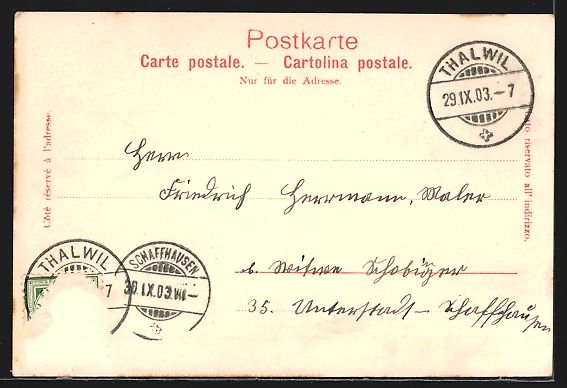 Postkarte
Carte postale. — Cartolina postale.
Nur für die Adresse.
THALWIL
29.IX.03.–7
Côté réservé à l'adresse.
riservato all' indirizzo.
Herr
Friedrich Herrmann, Maler
b. Witwe Schobinger
35. Unterstadt - Schaffhausen
THALWIL
7
SCHAFFHAUSEN
29.IX.03.